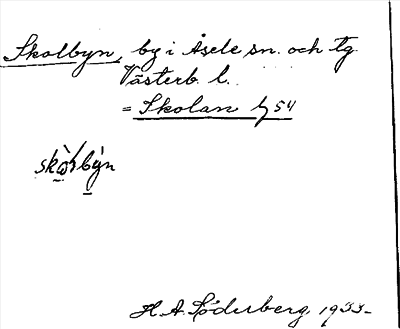 Skolbyn, by i Åsele sn. och tg.
Västerb. l.
= Skolan 54
skòlbýn
H. A. Söderberg 1933